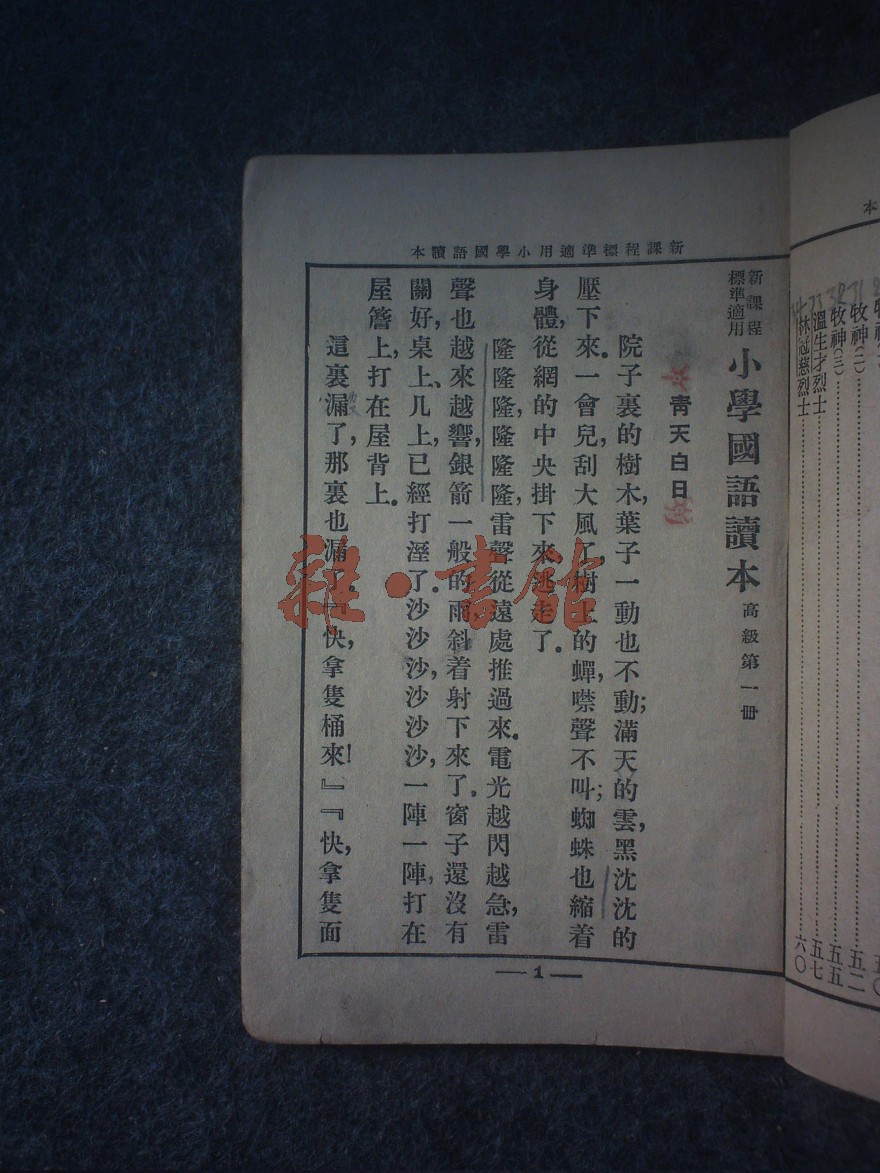 新課程標準適用小學國語讀本
新課程
標準適用
小學國語讀本 高級第一冊
青天白日
院子裏的樹木，葉子一動也不動；滿天的雲，黑沈沈的
壓下來。一會兒，刮大風了，樹上的蟬，噤聲不叫；蜘蛛也縮着
身體，從網的中央掛下來逃走了。
隆隆隆，隆隆隆，雷聲從遠處推過來。電光越閃越急，雷
聲也越來越響，銀箭一般的雨，斜着射下來了。窗子還沒有
關好，桌上、几上，已經打溼了。沙沙沙，沙沙沙，一陣一陣，打在
屋簷上，打在屋背上。
這裏漏了，那裏也漏了。『快，拿隻桶來！』『快，拿隻面
1
牧神(二)……五二
牧神(三)……五五
溫生才烈士……五七
林冠慈烈士……六〇
雜·書館